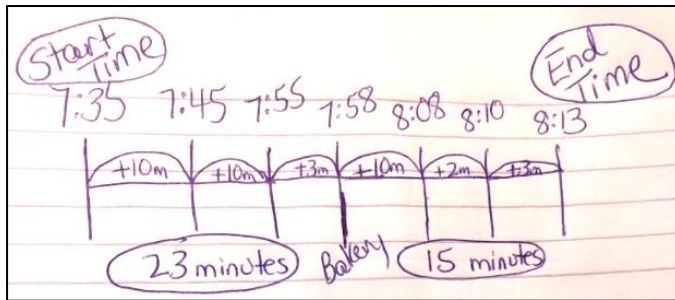 Start Time
End Time
7:35 7:45 7:55 7:58 8:08 8:10 8:13
+10m +10m +3m +10m +2m +3m
23 minutes Bakery 15 minutes